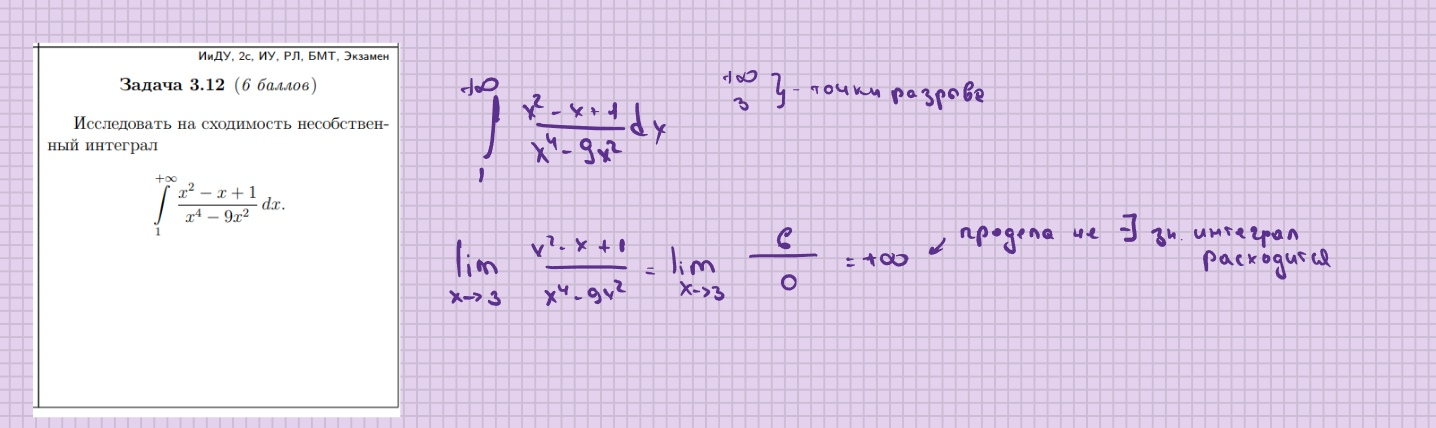 ИиДУ, 2с, ИУ, РЛ, БМТ, Экзамен
Задача 3.12 (6 баллов)
Исследовать на сходимость несобствен-
ный интеграл
+∞
∫ x² − x + 1 / x⁴ − 9x² dx.
1
+∞
∫ x² - x + 1 / x⁴ - 9x² dx
1
+∞
3 } - точки разрыва
lim x→3 x² - x + 1 / x⁴ - 9x² = lim x→3 6 / 0 = +∞ ↙ предела не ∃ зн. интеграл
расходится